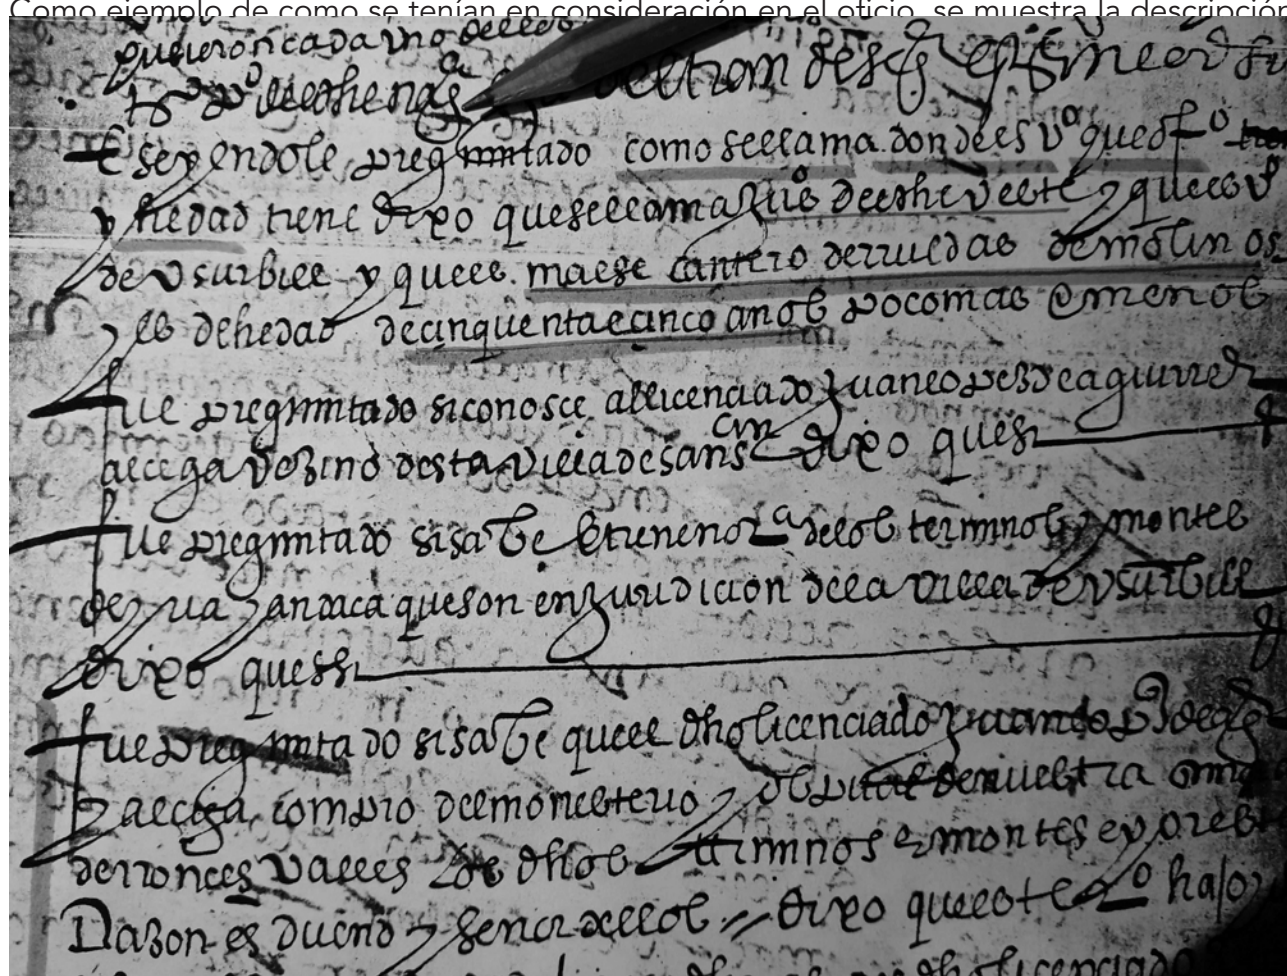 Como ejemplo de como se tenían en consideración en el oficio, se muestra la descripción
cada uno dellos
E seyendole preguntado como se llama donde es vº que ofº
y hedad tiene dixo que se llama Juº de echeveste y que es vº
de Usurbill y que es maese cantero de rruedas de molinos
y es de hedad de cinquenta e cinco anos poco mas o menos
fue preguntado si conosce al licenciado Juan lopes de aguirre
alcega vezino desta villa de san sn dixo que si
fue preguntado si sabe e tiene noª de los terminos y montes
de que son en juridicion de la villa de Usurbill
dixo que si
fue preguntado si sabe que el dho licenciado
alcega compro del monesterio y ospital de nuestra
de rronces valles los dhos terminos e montes e por esta
Razon es dueno y senor dellos dixo que este tº
licenciado